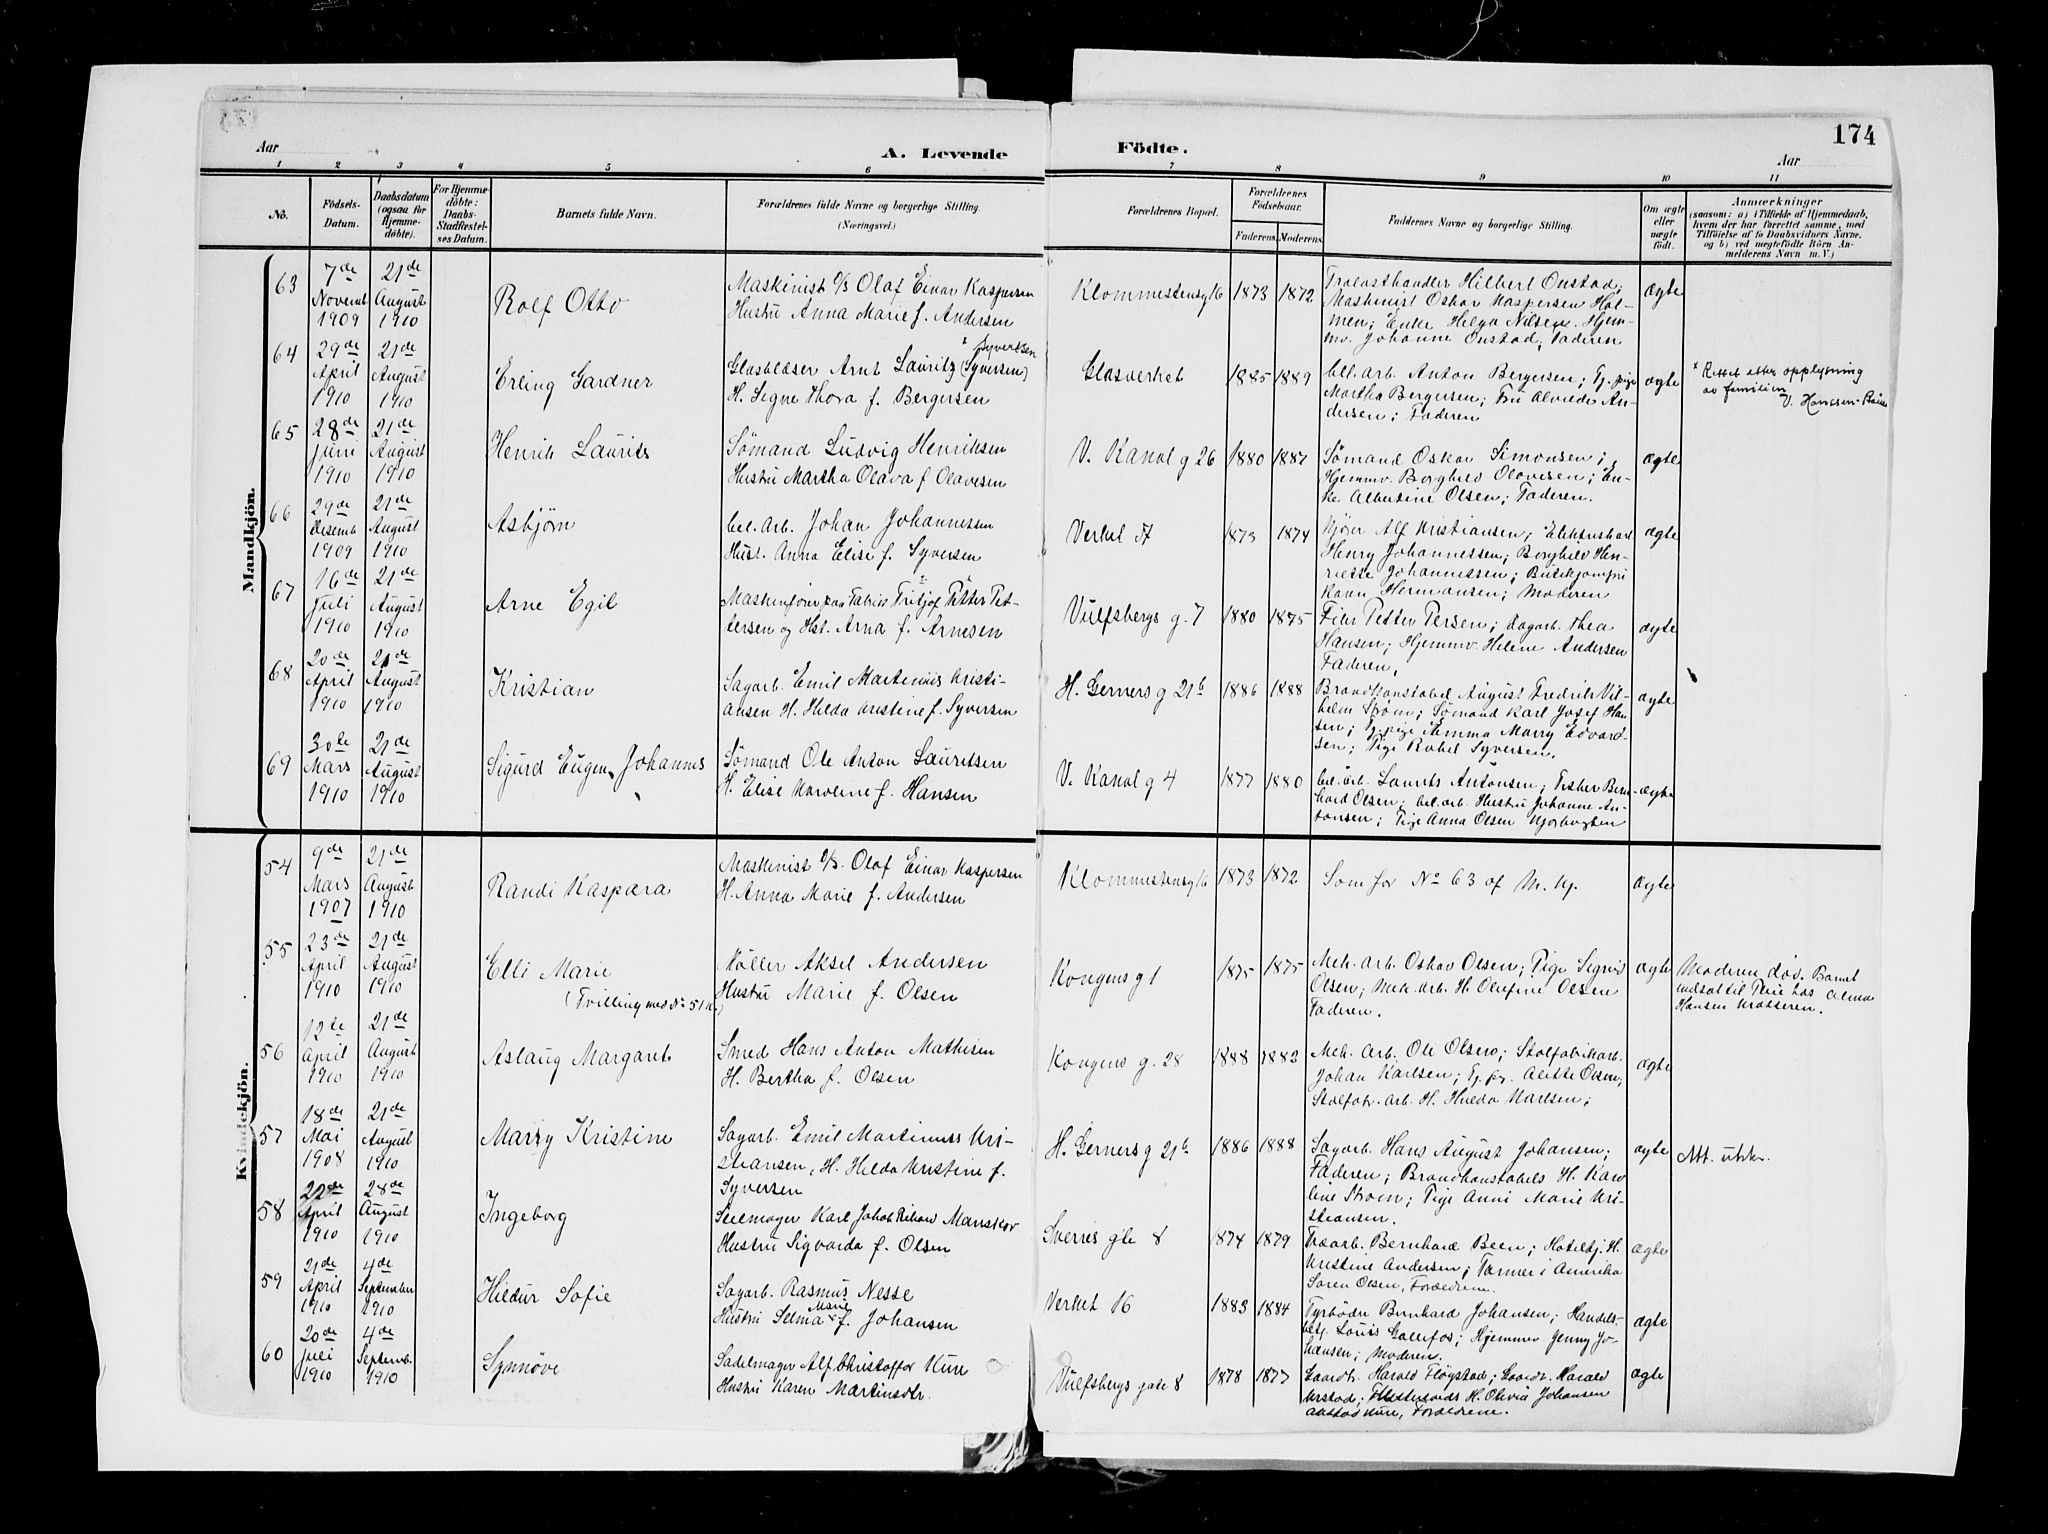 174
Aar
A. Levende
Födte.
Aar
1 2 3 4 5 6 7 8 9 10 11
No.
Födsels-
Datum.
Daabsdatum
(ogsaa for
Hjemme-
döbte).
For Hjemme-
döbte:
Daabs-
Stadfæstel-
ses Datum.
Barnets fulde Navn.
Forældrenes fulde Navne og borgerlige Stilling
(Næringsvei.)
Forældrenes Bopæl.
Forældrenes
Födselsaar.
Faderens. Moderens.
Faddernes Navne og borgerlige Stilling.
Om ægte
eller
uægte
födt.
Anmærkninger
(saasom: a) i Tilfælde af Hjemmedaab,
hvem der har forrettet samme, med
Tilföielse af to Daabsvidners Navne.
og b) ved uegtefödte Börn An-
melderens Navn m. V.)
Mandkjön.
63
7de
Novemb
1909
21de
August
1910
Rolf Otto
Maskinist o/s Olaf Einar Kaspersen
Hustru Anna Marie f. Andersen
Klommestensg 16
1873 1872
Trælasthandler Hilbert Onstad;
Maskinist Oskar Kaspersen Hol-
men; Enke Helga Nilsen. Hjem-
mv. Johanne Onstad; Faderen
ægte
64
29de
April
1910
21de
August
1910
Erling Gardner
x Syvertsen
Glasblæser Arnt Lauritz (Syversen)
H. Signe Thora f. Bergersen
Glasverket
1885 1889
bel. arb. Anton Bergersen; Tj. pige
Martha Bergersen; Fru Alvilde An-
dersen; Faderen
ægte
x Rettet etter opplysning
av familien
V. Hansen-
65
28de
Juni
1910
21de
August
1910
Henrik Laurits
Sömand Ludvig Henriksen
Hustru Martha Olava f Olavesen
V. Kanal g 26
1880 1887
Sömand Oskar Simonsen;
Hjemmv. Borghild Olavesen; En-
ke. Albertine Olsen; Faderen.
ægte
66
29de
Desemb
1909
21de
August
1910
Asbjørn
bel. arb. Johan Johannessen
Hust. Anna Elise f. Syversen
Verket 7
1873 1874
Kjører Alf Kristiansen;
Henry Johannessen; Borghild Hen-
riette Johannessen; Butikjomfru
Karen Hermansen; Moderen
ægte
67
16de
Juli
1910
21de
August
1910
Arne Egil
Maskenfører paa Fabrik Fritjof Petter Pet-
tersen og Hst. Arna f. Arnesen
Vulfsbergs g. 7
1880 1875
Filer Petter Persen; dagarb. Thea
Hansen; Hjemmv Helene Andersen
Faderen,
ægte
68
20de
April
1910
21de
August
1910
Kristian
Sagarb. Emil Martinius Kristi-
ansen H. Hilda Kristine f. Syversen
H. Gerners g 21b
1886 1888
Brandkonstabel August Fredrik Vil-
helm Strøm; Sømand Karl Josef Han
sen; Tj.pige Emma Marry Edvard-
sen; Pige Rakel Syversen.
ægte
69
30te
Mars
1910
21de
August
1910
Sigurd Eugen Johannes
Sömand Ole Anton Lauritsen
H. Elise Karoline f. Hansen
V. Kanal g 4
1877 1880
bel. arb. Laurits Antonsen; Fisker Bern
hard Olsen; bel. arb. Hustru Johanne An-
tonsen; Pige Anna Olsen
ægte
Kvindekjön.
54
9de
Mars
1907
21de
August
1910
Randi Kaspara
Maskinist o/s. Olaf Einar Kaspersen
H. Anna Marie f. Andersen
Klommestensg 16
1873 1872
Som for No 63 af M. Kj.
ægte
55
23de
April
1910
21de
August
1910
Elli Marie
(Tvilling med No 51
Møller Aksel Andersen
Hustru Marie f. Olsen
Kongens g 1
1875 1875
Mek. arb. Oskar Olsen; Pige Sigrid
Olsen; Mek. arb. H. Olufine Olsen
Faderen.
ægte
Moderen død. Barnet
indsat til Pleie hos Alma
Hansen
56
12te
April
1910
21de
August
1910
Aslaug Margaret
Smed Hans Anton Mathisen
H. Bertha f. Olsen
Kongens g. 28
1888 1882
Mek. Arb. Ole Olsen; Stolfabrikarb.
Johan Karlsen; Tj. pg. Alette Olsen;
Stolfabr. arb. H. Hulda Karlsen;
ægte
57
18de
Mai
1908
21de
August
1910
Marry Kristine
Sagarb. Emil Martinius Kri-
stiansen, H. Hilda Kristine f.
Syversen
H. Gerners g 21b
1886 1888
Sagarb. Hans August Johansen;
Faderen; Brandkonstabels H. Karo
line Strøm; Pige Anni Marie Kri-
stiansen.
ægte
Att. utskr.
58
22de
April
1910
28de
August
1910
Ingeborg
Seilmager Karl Jakob Rikard Manskov
Hustru Sigvarda f. Olsen
Sverres gte 8
1874 1879
Træarb. Bernhard Been; Hotelbj. H.
Kristine Andersen; Farmer i Amerika
Søren Olsen, Forældrene.
ægte
59
21de
April
1910
4de
September
1910
Hildur Sofie
Sagarb. Rasmus Nesse
Marie
Hustru Selma f. Johansen
Verket 16
1883 1884
Fyrbøder Bernhard Johansen; Handels-
betj. Louis Gallefos; Hjemmev Jenny Jo-
hansen; Moderen.
ægte
60
20de
Juli
1910
4de
Septemb.
1910
Synnøve
Sadelmager Alf Christoffer Kure
Hustru Karen Martinsdtr.
Vulfsbergs gate 8
1878 1877
Gaardbr. Harald Fløgstad; Gaardbr. Harald
H. Olivia Johansen
Kure, Forældrene.
ægte